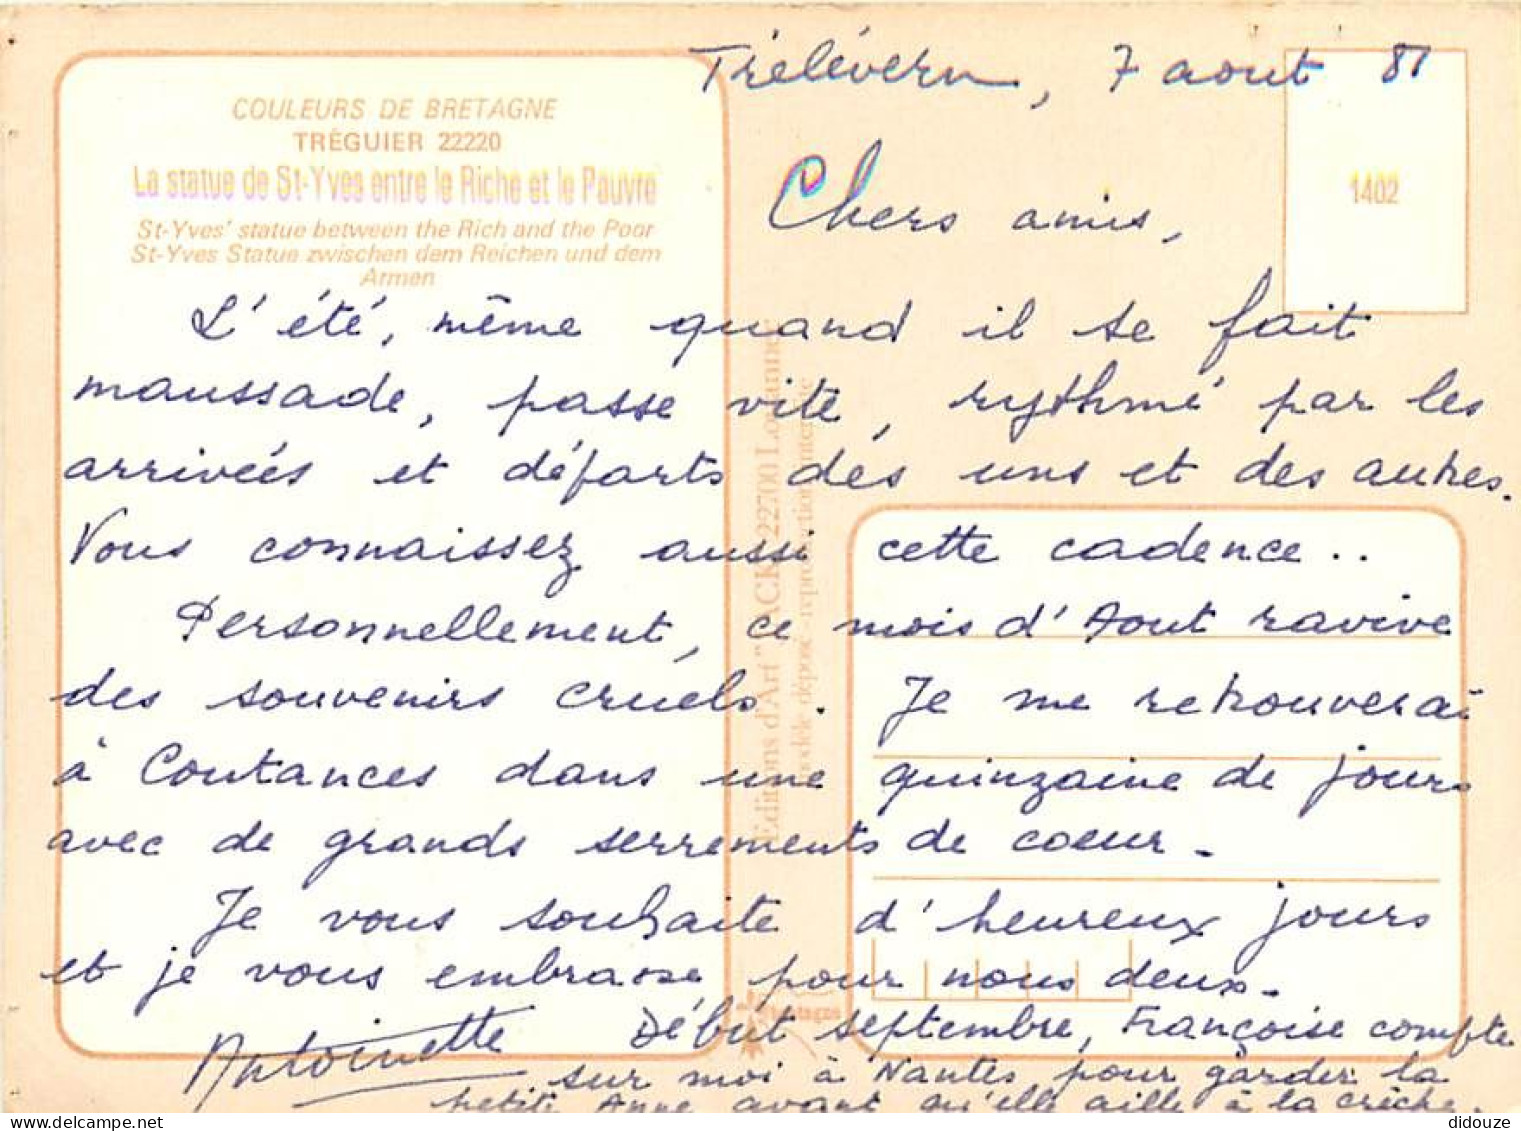 Trélévern, 7 aout 81
COULEURS DE BRETAGNE
TRÉGUIER 22220
La statue de St-Yves entre le Riche et le Pauvre
St-Yves' statue between the Rich and the Poor
St-Yves Statue zwischen dem Reichen und dem
Armen
1402
Chers amis,
L'été, même quand il se fait
maussade, passe vite, rythmé par les
arrivées et départs des uns et des autres.
Vous connaissez aussi cette cadence..
Personnellement, ce mois d'Aout ravive
des souvenirs cruels. Je me retrouverai
à Coutances dans une quinzaine de jours
avec de grands serrements de coeur.
Je vous souhaite d'heureux jours
et je vous embrasse pour nous deux.
Antoinette Début septembre, Françoise compte
sur moi à Nantes pour garder la
petite Anne avant qu'elle aille à la crèche.
Editions d'Art "JACK" 22700 Louannec
modèle déposé - reproduction interdite
didouze